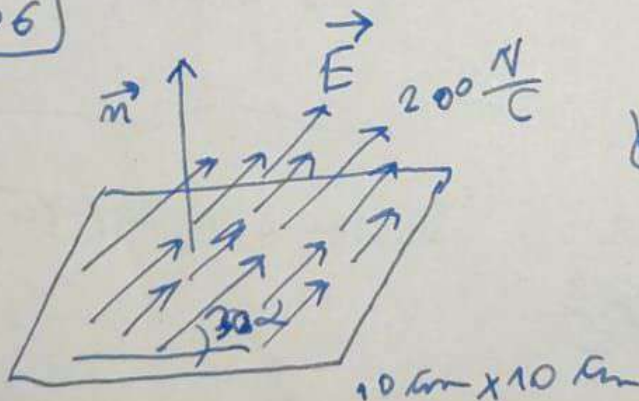 6
n⃗
E⃗
200 N/C
30
10 cm x 10 cm